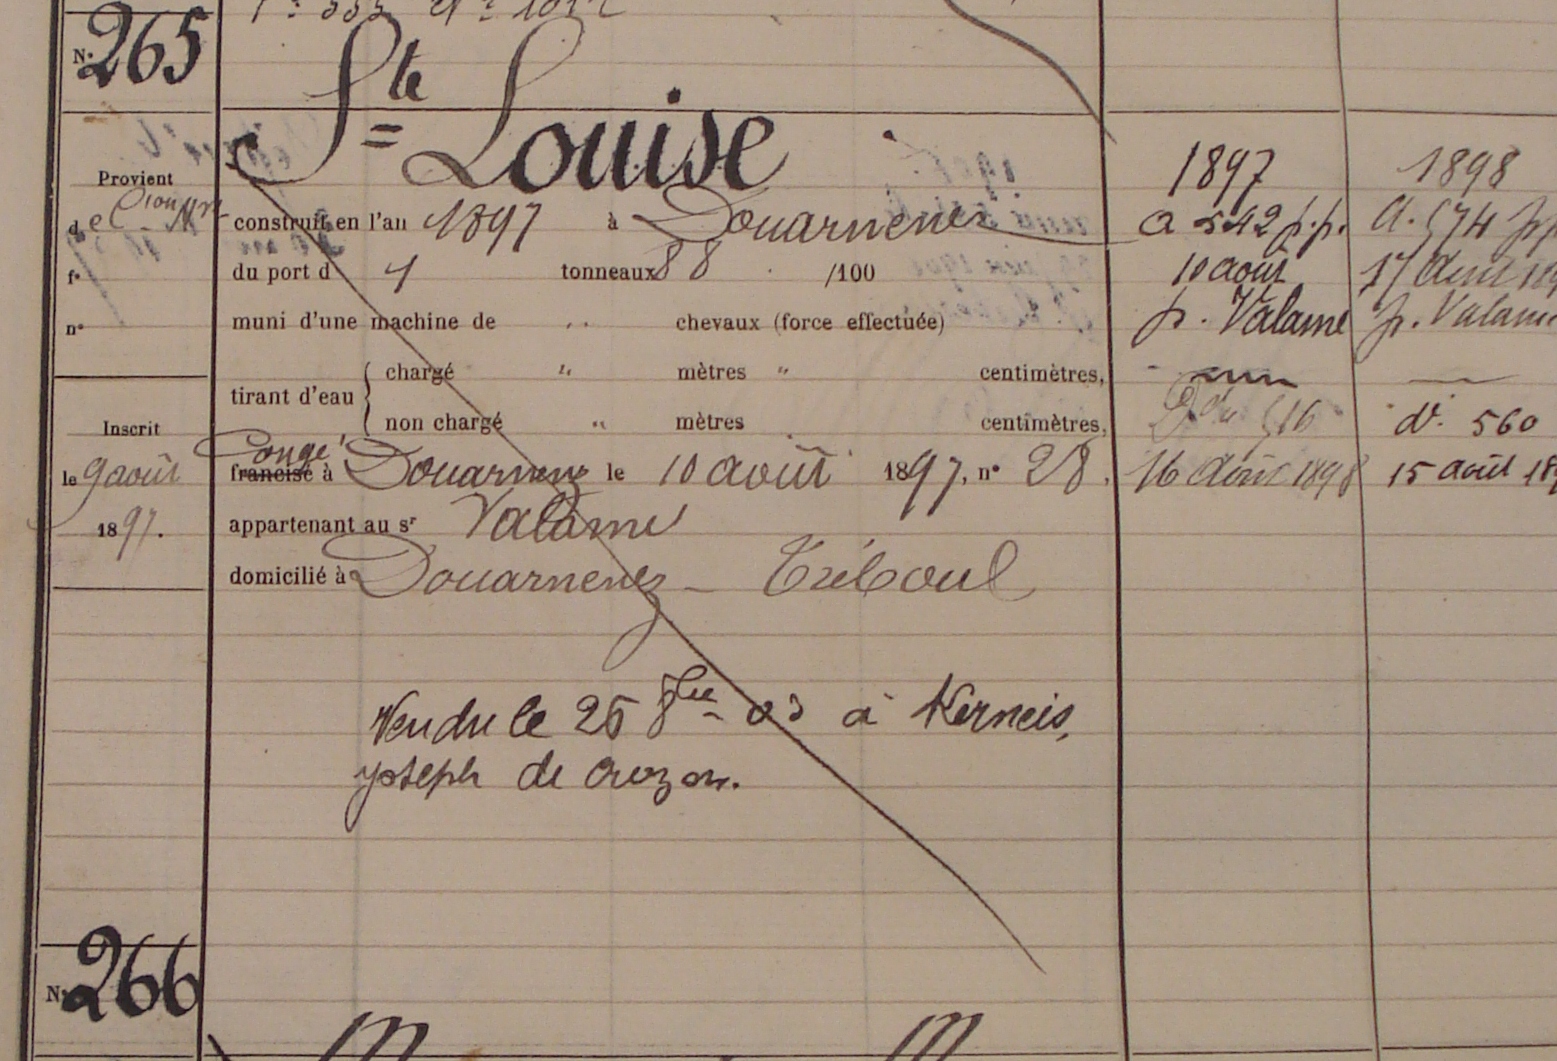 N° 265
Ste Louise
1897 1898
Provient
construit en l'an 1897 à Douarnenez
a 542 p.p. a. 574 p.p
du port d 4 tonneaux 88 /100
10 août 17 août 189
f°
n° muni d'une machine de " chevaux (force effectuée)
p. Valame p. Valame
tirant d'eau
chargé " mètres " centimètres,
non chargé " mètres centimètres,
516 d° 560
Inscrit
Congé
le 9 août francisé à Douarnenez le 10 août 1897, n° 28.
16 août 1898 15 août 189
1897. appartenant au sr Valame
domicilié à Douarnenez - Tréboul
Vendu le 26 8bre 03 à Kerneis,
Joseph de Crozon.
N° 266